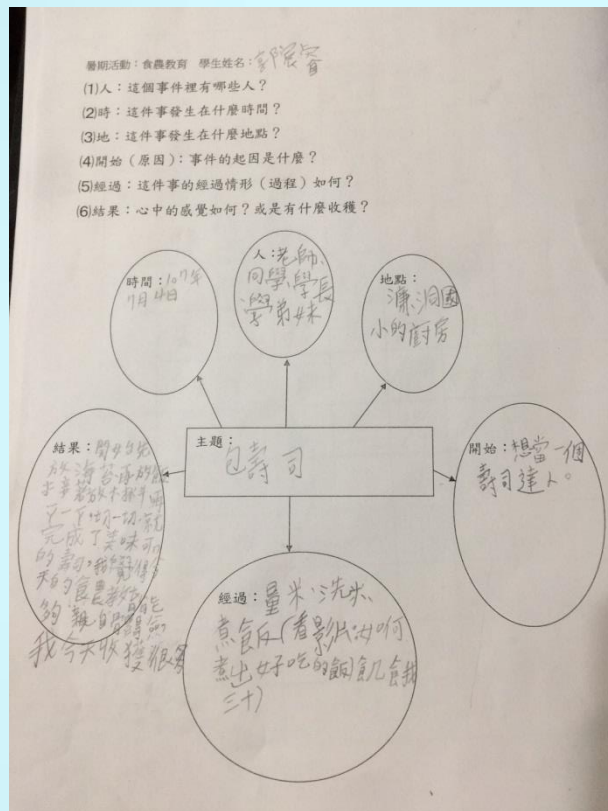 暑期活動：食農教育 學生姓名：郭宸睿
⑴人：這個事件裡有哪些人？
⑵時：這件事發生在什麼時間？
⑶地：這件事發生在什麼地點？
⑷開始（原因）：事件的起因是什麼？
⑸經過：這件事的經過情形（過程）如何？
⑹結果：心中的感覺如何？或是有什麼收穫？
時間：107年
7月4日
人：老師、
同學、學長
學弟妹
地點：
濂洞國
小的廚房
主題：
包壽司
開始：想當一個
壽司達人。
結果：開始先
放海苔再放飯
一下切一切就
完成了美味可口
的壽司，我覺得今
天的食農教育能
夠親自
我今天收獲很多
經過：量米、洗米、
煮飯（看影片如何
煮出好吃的飯）飢餓
三十）